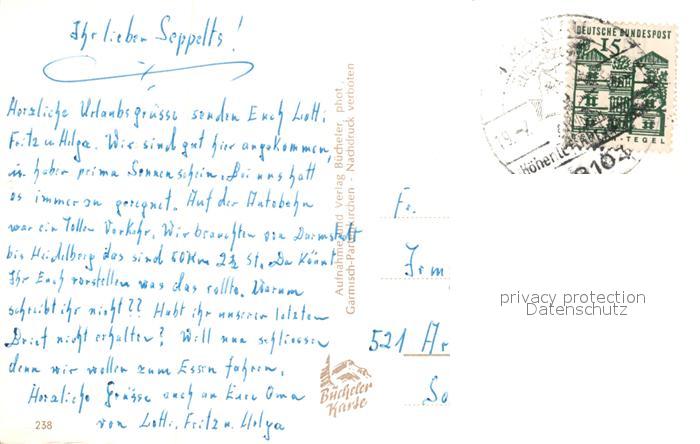 Ihr lieben Seppelts!
Herzliche Urlaubsgrüsse senden Euch Lotti
Fritz u. Helga. Wir sind gut hier angekommen,
u. haben prima Sonnenschein. Bei uns hatt
es immer zu geregnet. Auf der Autobahn
war ein Tollen Verkehr. Wir brauchten von Darmstadt
bis Heidelberg das sind 60 Km 2½ St. Da Könnt
Ihr Euch vorstellen was das rollte. Warum
schreibt ihr nicht?? Habt ihr unseren letzten
Brief nicht erhalten? Will nun schliessen
denn wir wollen zum Essen fahren.
Herzliche Grüsse auch an Eure Oma
von Lotti, Fritz u. Helga
238
Aufnahme und Verlag Bücheler phot.
Garmisch-Partenkirchen · Nachdruck verboten
Bücheler
Karte
DEUTSCHE BUNDESPOST
15
TEGEL
19.-7
8104
Fr.
Irm
521 Ar
So
privacy protection
Datenschutz